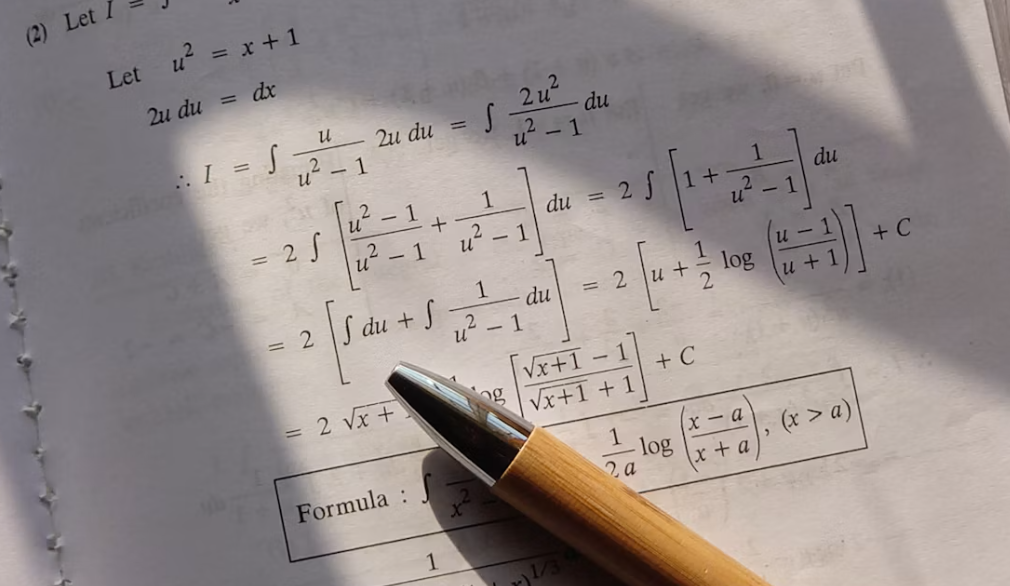 (2) Let I =
Let u² = x + 1
2u du = dx
∴ I = ∫ u/(u² − 1) 2u du = ∫ 2u²/(u² − 1) du
= 2 ∫ [(u² − 1)/(u² − 1) + 1/(u² − 1)] du = 2 ∫ [1 + 1/(u² − 1)] du
= 2 [∫ du + ∫ 1/(u² − 1) du] = 2 [u + 1/2 log ((u − 1)/(u + 1))] + C
= 2 √x + log [(√x+1 − 1)/(√x+1 + 1)] + C
Formula : ∫ x² 1/2a log ((x − a)/(x + a)), (x > a)
1
x)^1/3